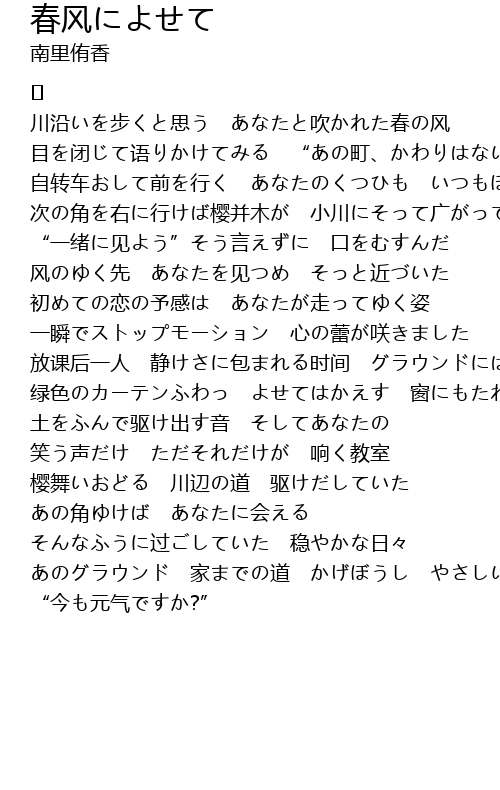 春风によせて
南里侑香
川沿いを歩くと思う　あなたと吹かれた春の风
目を闭じて语りかけてみる　 “あの町、かわりはない
自转车おして前を行く　あなたのくつひも　いつも
次の角を右に行けば樱并木が　小川にそって广がって
“一绪に见よう”そう言えずに　口をむすんだ
风のゆく先　あなたを见つめ　そっと近づいた
初めての恋の予感は　あなたが走ってゆく姿
一瞬でストップモーション　心の蕾が咲きました
放课后一人　静けさに包まれる时间　グラウンドには
绿色のカーテンふわっ　よせてはかえす　窗にもたれ
土をふんで驱け出す音　そしてあなたの
笑う声だけ　ただそれだけが　响く教室
樱舞いおどる　川辺の道　驱けだしていた
あの角ゆけば　あなたに会える
そんなふうに过ごしていた　稳やかな日々
あのグラウンド　家までの道　かげぼうし　やさしい
“今も元气ですか?”